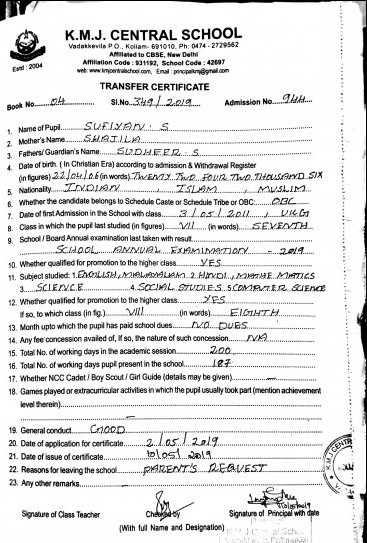 K.M.J. CENTRAL SCHOOL
Vadakkevila P.O., Kollam- 691010, Ph: 0474 - 2729562
Affiliated to CBSE, New Delhi
Affiliation Code : 931192, School Code : 42697
web: www.kmjcentralschool.com, Email : principalkmj@gmail.com
Estd : 2004
TRANSFER CERTIFICATE
Book No. 04 Sl.No. 349/2019 Admission No. 944
1. Name of Pupil SUFIYAN . S
2. Mother's Name SHAJILA
3. Fathers/ Guardian's Name SUDHEER . S
4. Date of birth. ( In Christian Era) according to admission & Withdrawal Register
(in figures) 22/04/06 (in words) TWENTY TWO FOUR TWO THOUSAND SIX
5. Nationality INDIAN , ISLAM , MUSLIM
6. Whether the candidate belongs to Schedule Caste or Schedule Tribe or OBC: OBC
7. Date of first Admission in the School with class 3/05/2011, UKG
8. Class in which the pupil last studied (in figures) VII (in words) SEVENTH
9. School / Board Annual examination last taken with result
SCHOOL ANNUAL EXAMINATION - 2019
10. Whether qualified for promotion to the higher class YES
11. Subject studied: 1 ENGLISH, MALAYALAM 2 HINDI , MATHE MATICS
3 SCIENCE 4 SOCIAL STUDIES 5 COMPUTER SCIENCE
12. Whether qualified for promotion to the higher class YES
If so, to which class (in fig.) VIII (in words) EIGHTH
13. Month upto which the pupil has paid school dues NO DUES
14. Any fee concession availed of, If so, the nature of such concession NA
15. Total No. of working days in the academic session 200
16. Total No. of working days pupil present in the school 187
17. Whether NCC Cadet / Boy Scout / Girl Guide (details may be given) –
18. Games played or extracurricular activities in which the pupil usually took part (mention achievement
level therein) –
19. General conduct GOOD
20. Date of application for certificate 2/05/2019
21. Date of issue of certificate 10/05/2019
22. Reasons for leaving the school PARENT'S REQUEST
23. Any other remarks –
Signature of Class Teacher Checked by Signature of Principal with date
(With full Name and Designation)